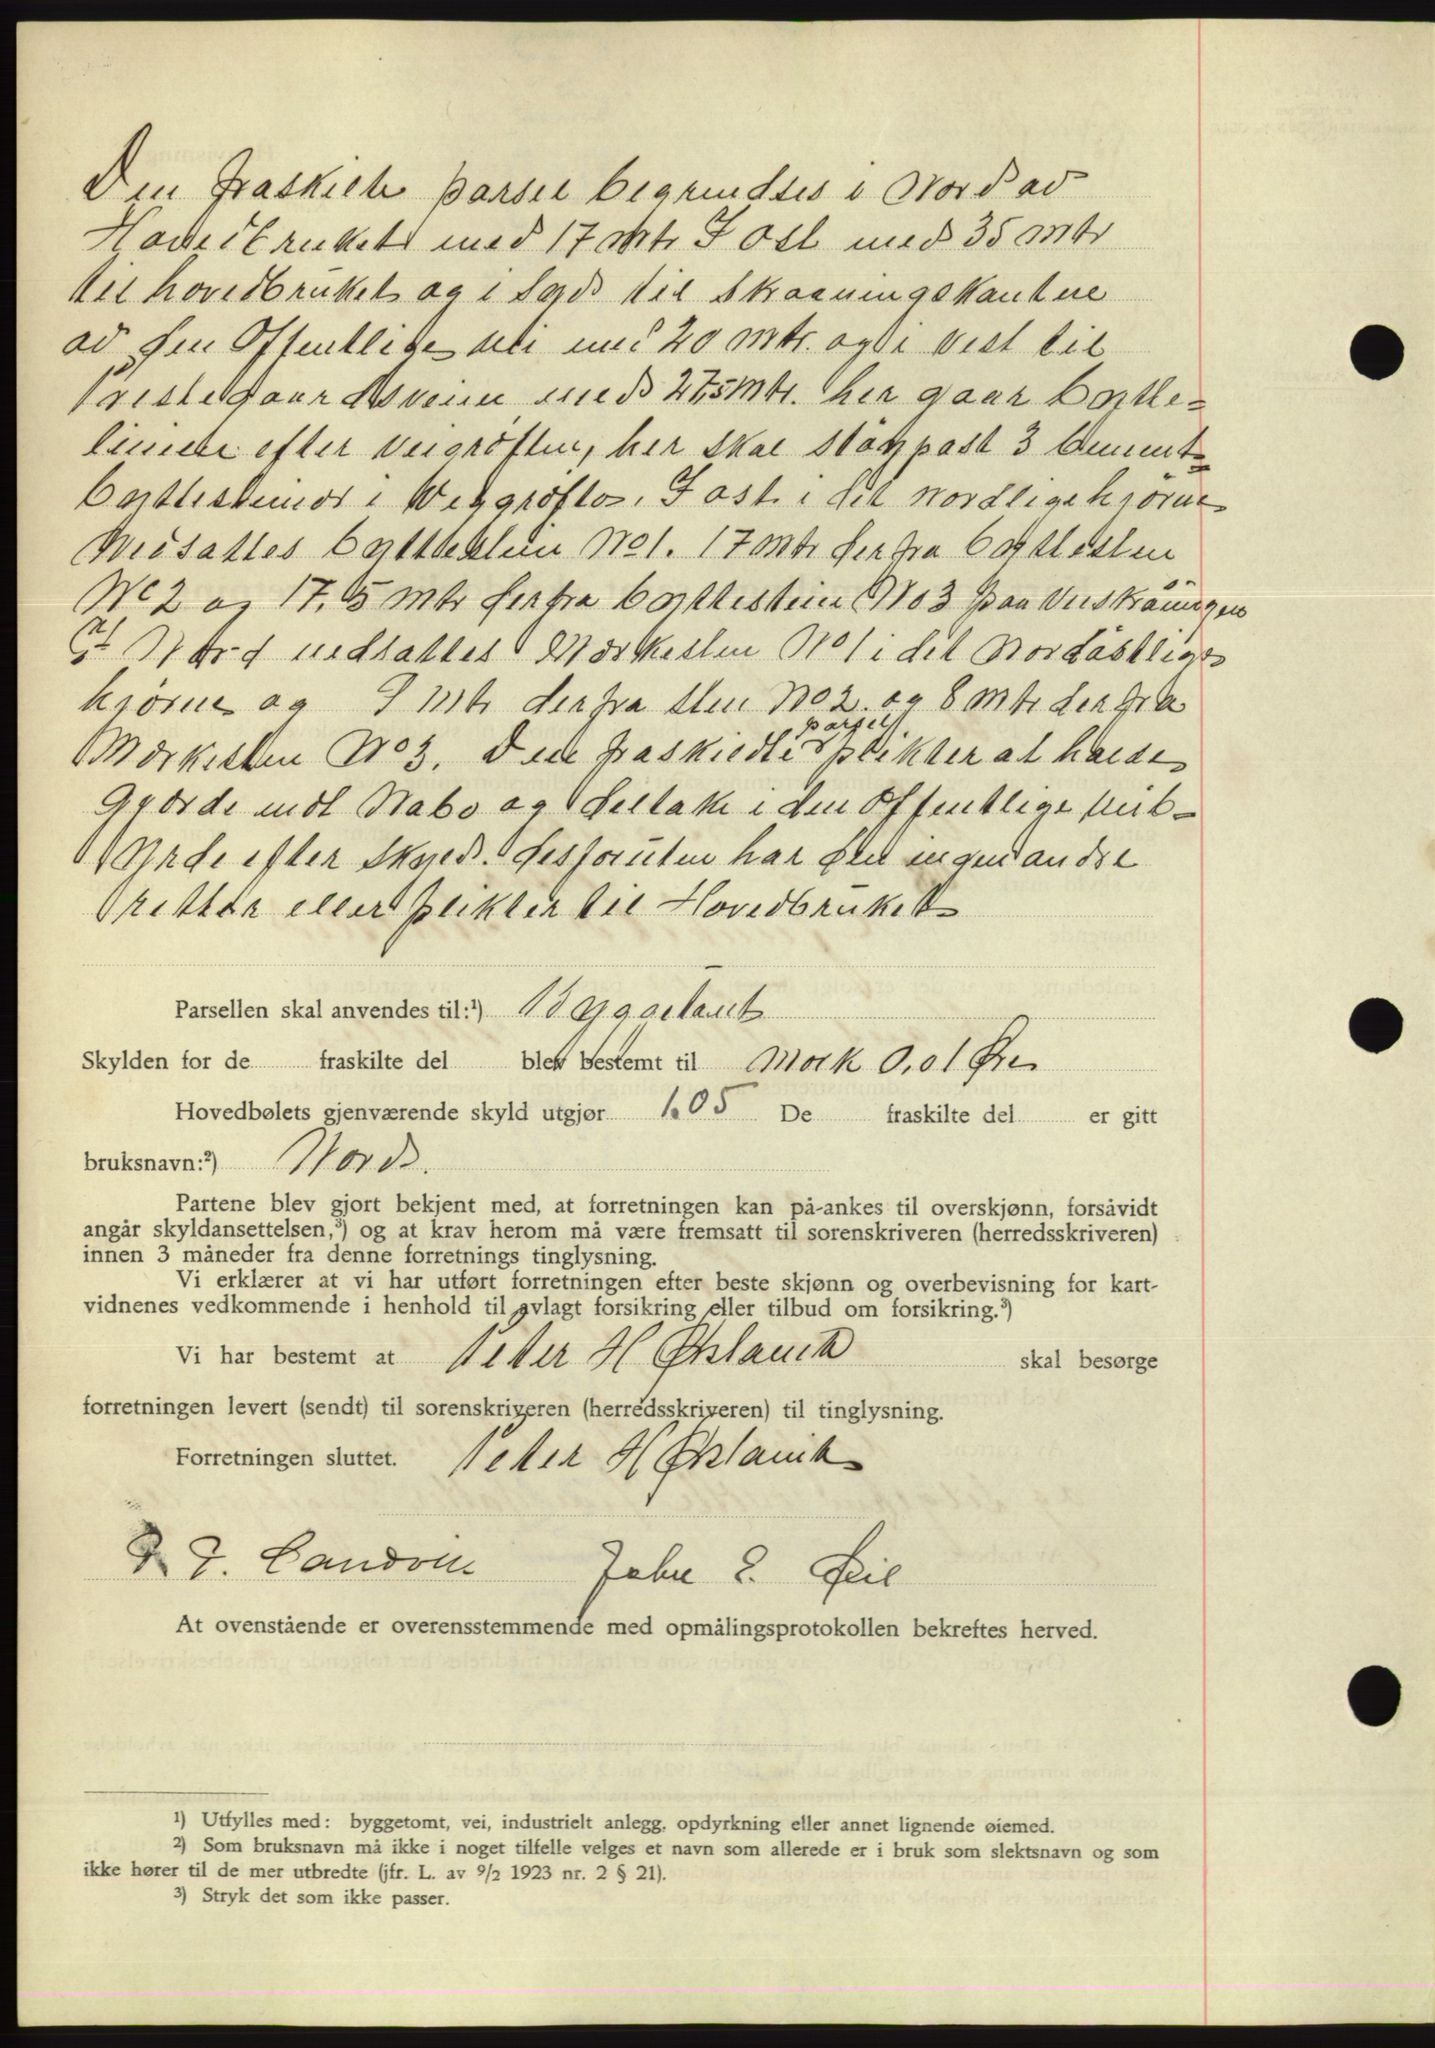 Den fraskilte parsel begrendses i Nord av
Hovedbruket med 17 mtr I ost med 35 mtr
til hovedbruket og i Syd til skraaningskantene
av den Offentlige vei med 20 mtr. og i vest til
Prestegaardsveien med 27,5 mtr. her gaar bytte-
linien efter veigrøften, her skal 3 Cement-
byttesteiner i Veggrøften. I ost i det nordlige hjørne
Nedsattes byttestein No 1. 17 mtr derfra byttesten
No 2 og 17,5 mtr derfra byttestein No 3 paa Veiskråningen
I Nord nedsattes Merkesten No 1 i det Nordöstlige
hjørne og 9 mtr derfra sten No 2. og 8 mtr derfra
Merkesten No 3. Den fraskiedte parsel plikter at holde
Gjærde mot Nabo og deltake i den Offentlige veib-
yrde efter skyld. desforuten har den ingen andre
retter eller plikter til Hovedbruket
Parsellen skal anvendes til:¹) Byggetomt
Skylden for de fraskilte del blev bestemt til Mork 0,01 Øre
Hovedbølets gjenværende skyld utgjør 1.05 De fraskilte del er gitt
bruksnavn:²) Nord.
Partene blev gjort bekjent med, at forretningen kan på-ankes til overskjønn, forsåvidt
angår skyldansettelsen,³) og at krav herom må være fremsatt til sorenskriveren (herredsskriveren)
innen 3 måneder fra denne forretnings tinglysning.
Vi erklærer at vi har utført forretningen efter beste skjønn og overbevisning for kart-
vidnenes vedkommende i henhold til avlagt forsikring eller tilbud om forsikring.³)
Vi har bestemt at Peter H Ørslavik skal besørge
forretningen levert (sendt) til sorenskriveren (herredsskriveren) til tinglysning.
Forretningen sluttet. Peter H Ørslavik
J. Landvik John E. Øeil
At ovenstående er overensstemmende med opmålingsprotokollen bekreftes herved.
¹) Utfylles med: byggetomt, vei, industrielt anlegg, opdyrkning eller annet lignende øiemed.
²) Som bruksnavn må ikke i noget tilfelle velges et navn som allerede er i bruk som slektsnavn og som
ikke hører til de mer utbredte (jfr. L. av 9/2 1923 nr. 2 § 21).
³) Stryk det som ikke passer.